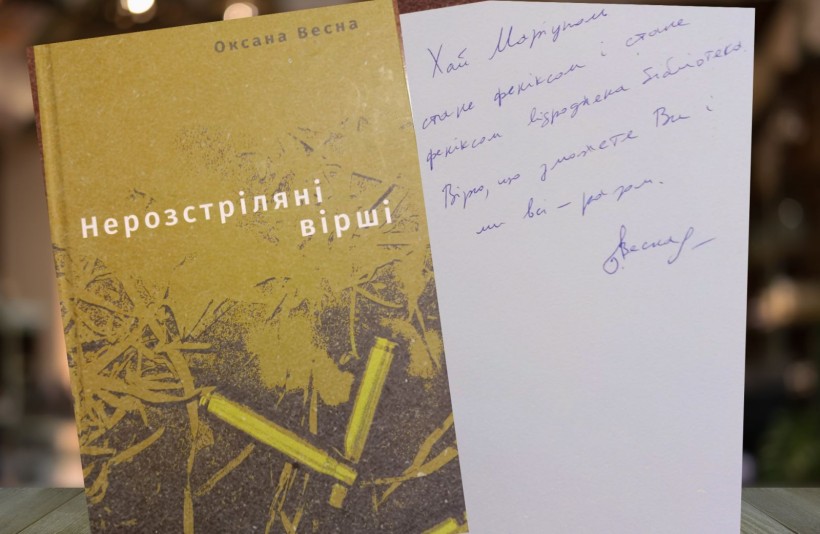 Оксана Весна
Нерозстріляні
вірші
Хай Маріуполь
стане феніксом і стане
феніксом відроджена бібліотека.
Вірю, що зможете Ви і
ми всі – разом.
ОВесна